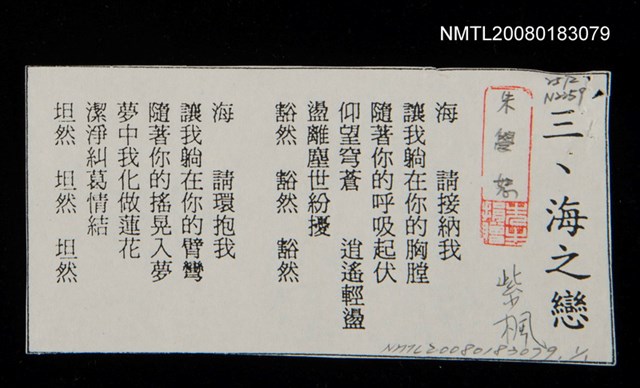 NMTL20080183079
N2259
三、海之戀
朱學恕
紫楓
海　請接納我
讓我躺在你的胸膛
隨著你的呼吸起伏
仰望穹蒼　逍遙輕盪
盪離塵世紛擾
豁然　豁然　豁然
海　請環抱我
讓我躺在你的臂彎
隨著你的搖晃入夢
夢中我化做蓮花
潔淨糾葛情結
坦然　坦然　坦然
NMTL20080183079. 1/1